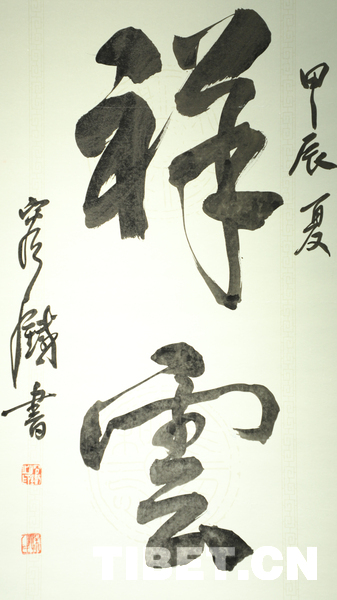 甲辰夏
祥雲
容鐵書
TIBET.CN